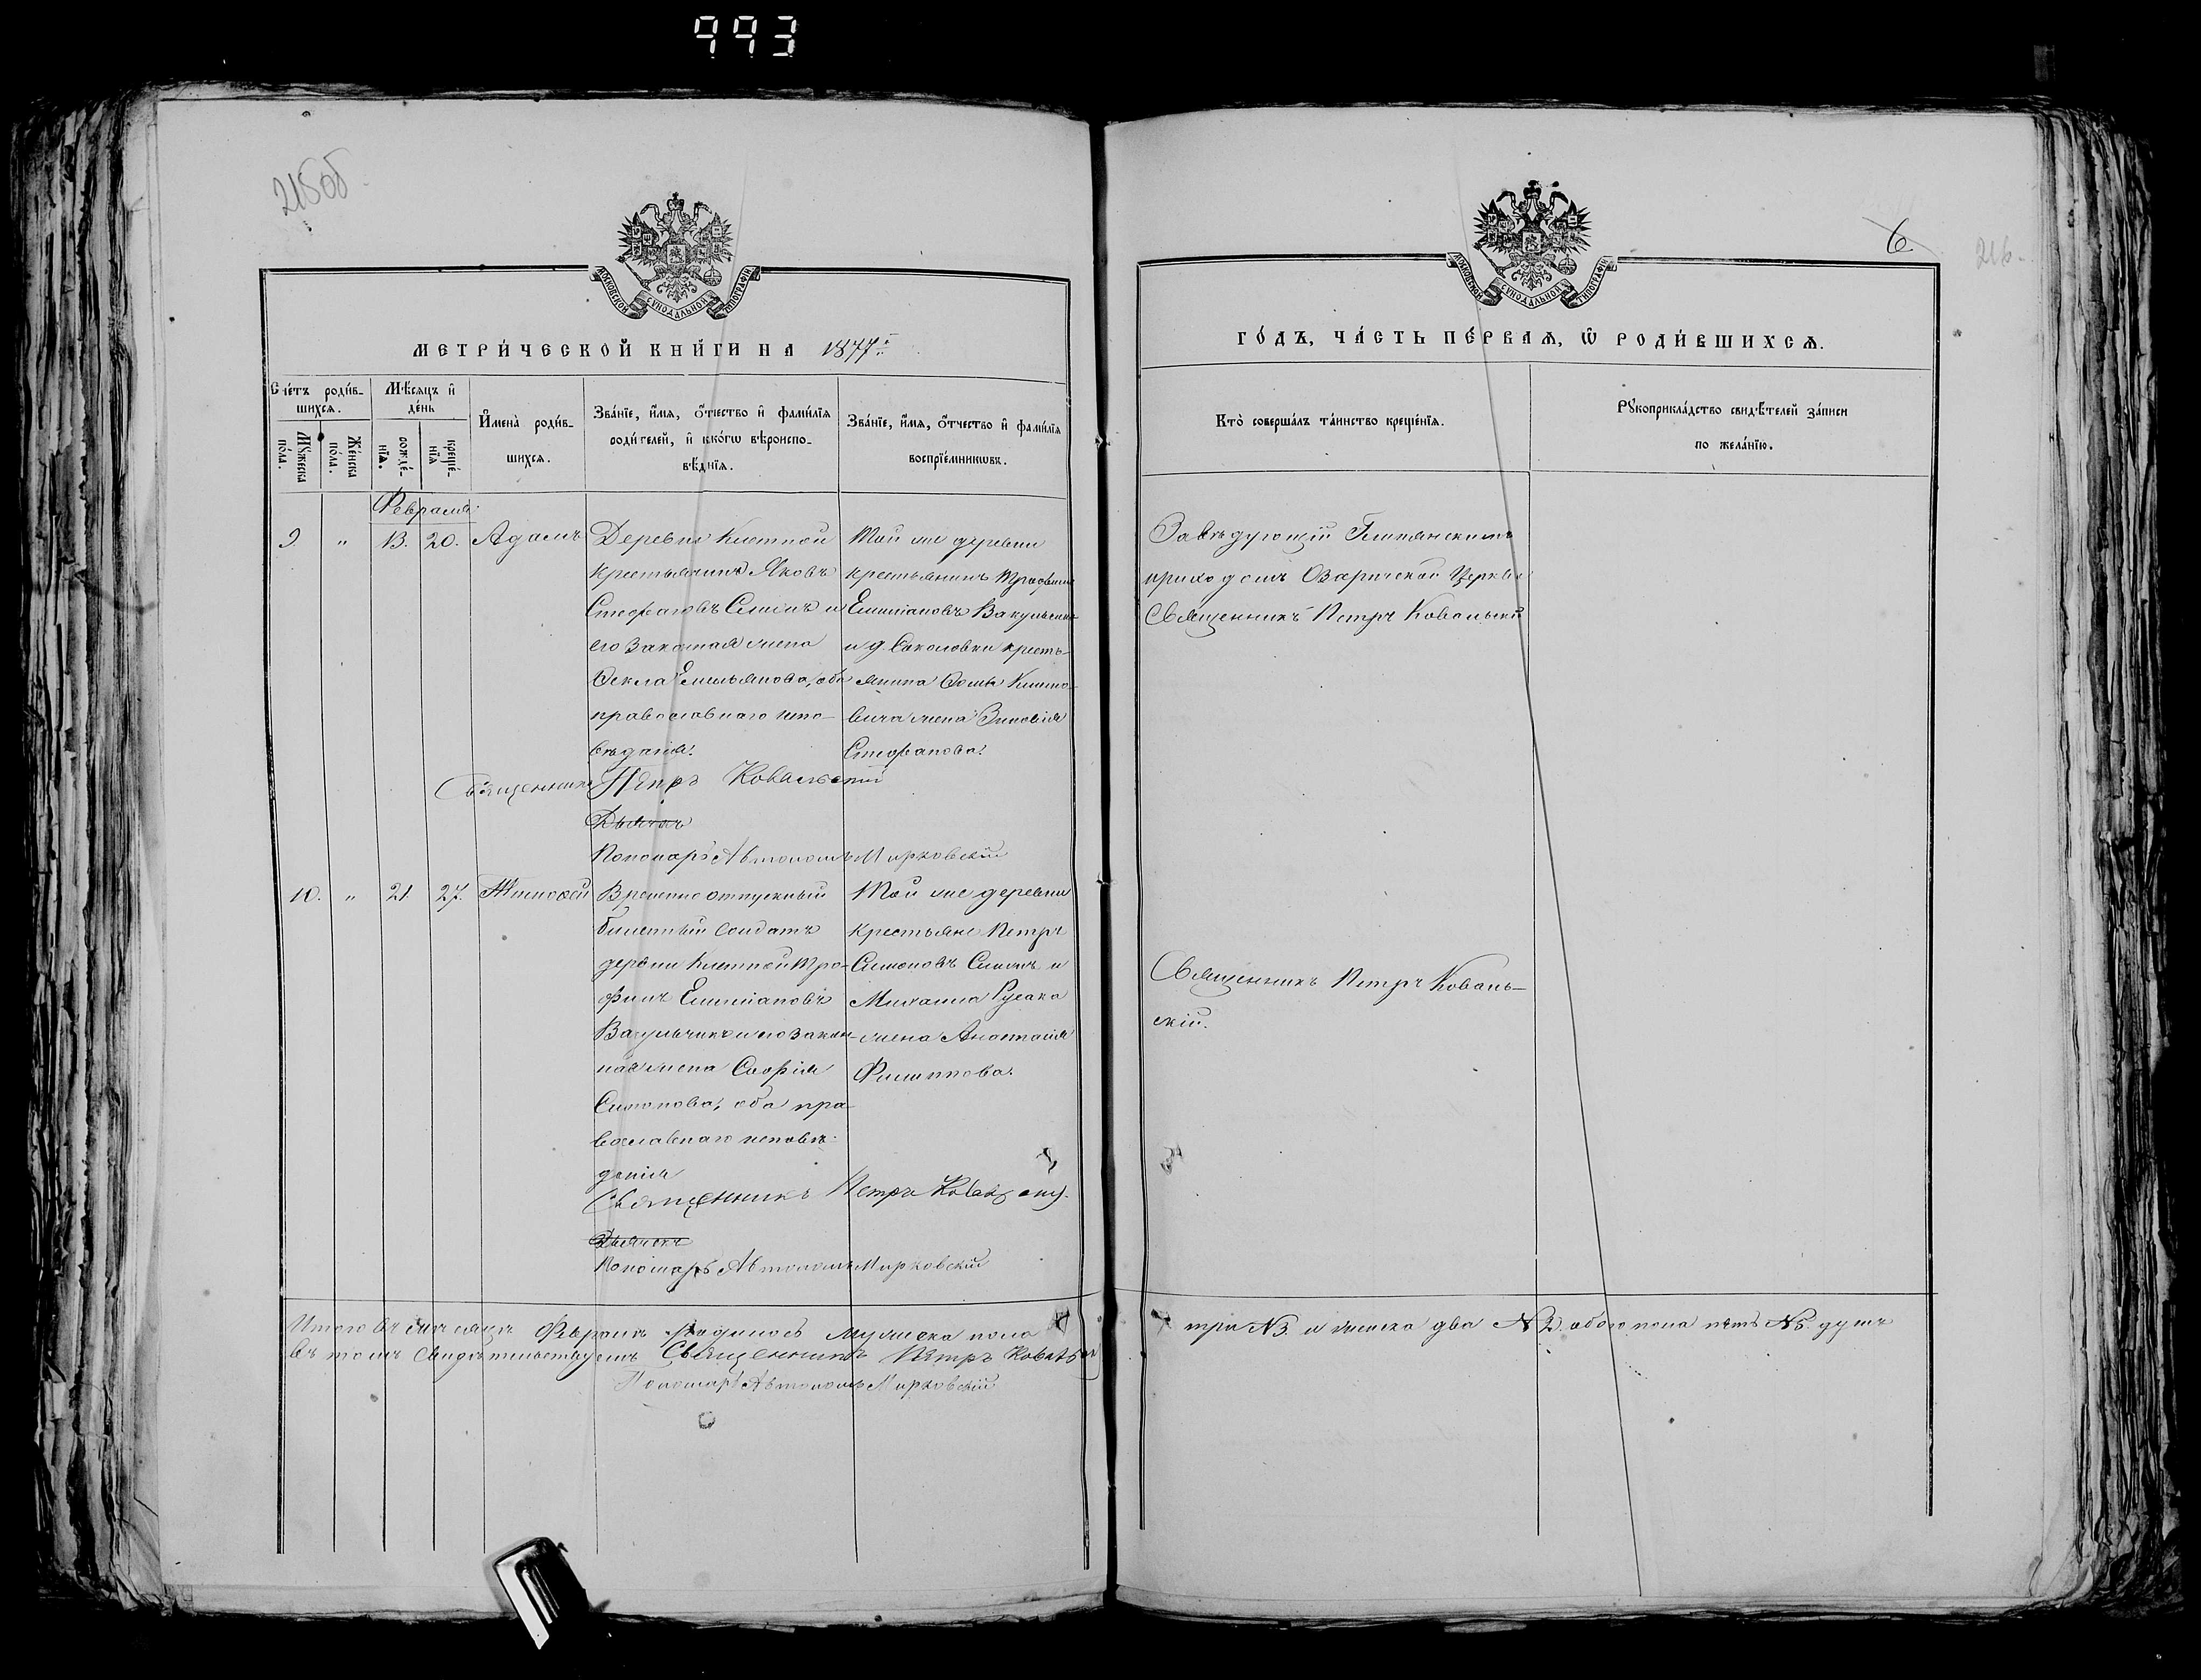 993
215об
6
216
МОСКОВСКОЙ СѴНОДАЛЬНОЙ ТИПОГРАФІИ
МОСКОВСКОЙ СѴНОДАЛЬНОЙ ТИПОГРАФІИ
МЕТРИ́ЧЕСКОЙ КНИ́ГИ НА 1877й
ГО́ДЪ, ЧА́СТЬ ПЕ́РВАѦ, Ѽ РОДИ́ВШИХСѦ.
Сче́тъ роди́в-
шихсѧ.
Мꙋ́жеска
по́ла.
Же́нска
по́ла.
Мѣ́сяцъ и҆
де́нь
рожде́-
нїѧ.
креще́-
нїѧ
И҆мена̀ роди́в-
шихсѧ.
Зва́нїе, и҆́мѧ, ѻ҆́тчество и҆ фами́лїѧ
роди́телей, и҆ кко́гѡ вѣроиспо-
вѣ́днїѧ.
Зва́нїе, и҆́мѧ, ѻ҆́тчество и҆ фами́лїѧ
воспрїе́мникѡвъ.
Кто̀ соверша́лъ та́инство креще́нїѧ.
Рꙋкоприкла́дство свидѣ́телей за́писи
по жела́нїю.
Февраля
9. " 13. 20. Адамъ
Деревни Клетной
крестьянинъ Яковъ
Стефановъ Симъ и
его законная жена
Ѳекла Емельянова, оба
православнаго испо-
вѣданія.
Той же деревни
крестьянинъ Трофимъ
Емиліановъ Вакульчик
и д. Соколовки кресть-
янина Ѳомы
жена Зиновія
Стефанова.
Завѣдующій
приходомъ Озаричской Церкви
Священникъ Петръ Ковальскій
Священникъ Петръ Ковальскій
Дьячокъ
Пономарь Автономъ Мирковскій
10. " 21. 27. Тимоѳей
Временно отпускный
билетный солдатъ
деревни Клетной Тро-
фимъ Емиліановъ
Вакульчикъ и его закон-
ная жена Софія
Симонова, оба пра-
вославнаго исповѣ-
данія
Той же деревни
крестьяне Петръ
Симоновъ Симъ и
Михаила Русака
жена Анастасія
Филиппова.
Священникъ Петръ Коваль-
скій.
Священникъ Петръ Ковальскій.
Дьячокъ
Пономарь Автономъ Мирковскій
Итого въ мѣсяцѣ Февралѣ родилось мужеска пола три №3. и женска два №2. обоего пола пять №5. душъ
въ томъ свидѣтельствуемъ Священникъ Петръ Ковальскій
Пономарь Автономъ Мирковскій